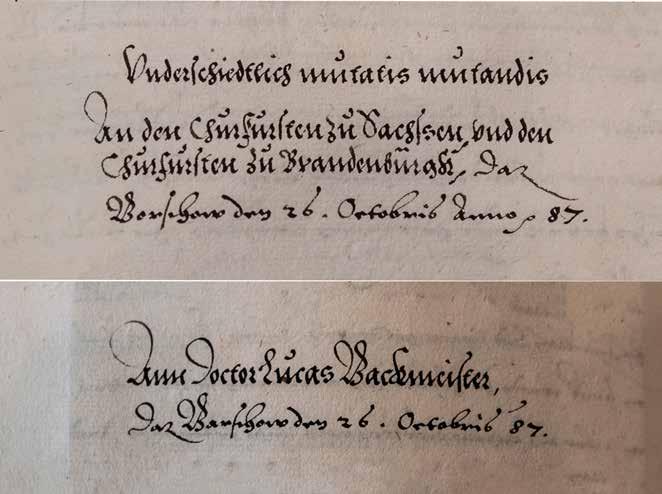 Vnderschiedtlich mutatis mutandis
An den Churfursten zu Sachssen, vnd den
Churfursten zu Brandenburgk, Dat
Worschow den 26. Octobris Anno, 87.
Ann Doctor Lucas Backmeister,
Dat Warschow den 26. Octobris 87.